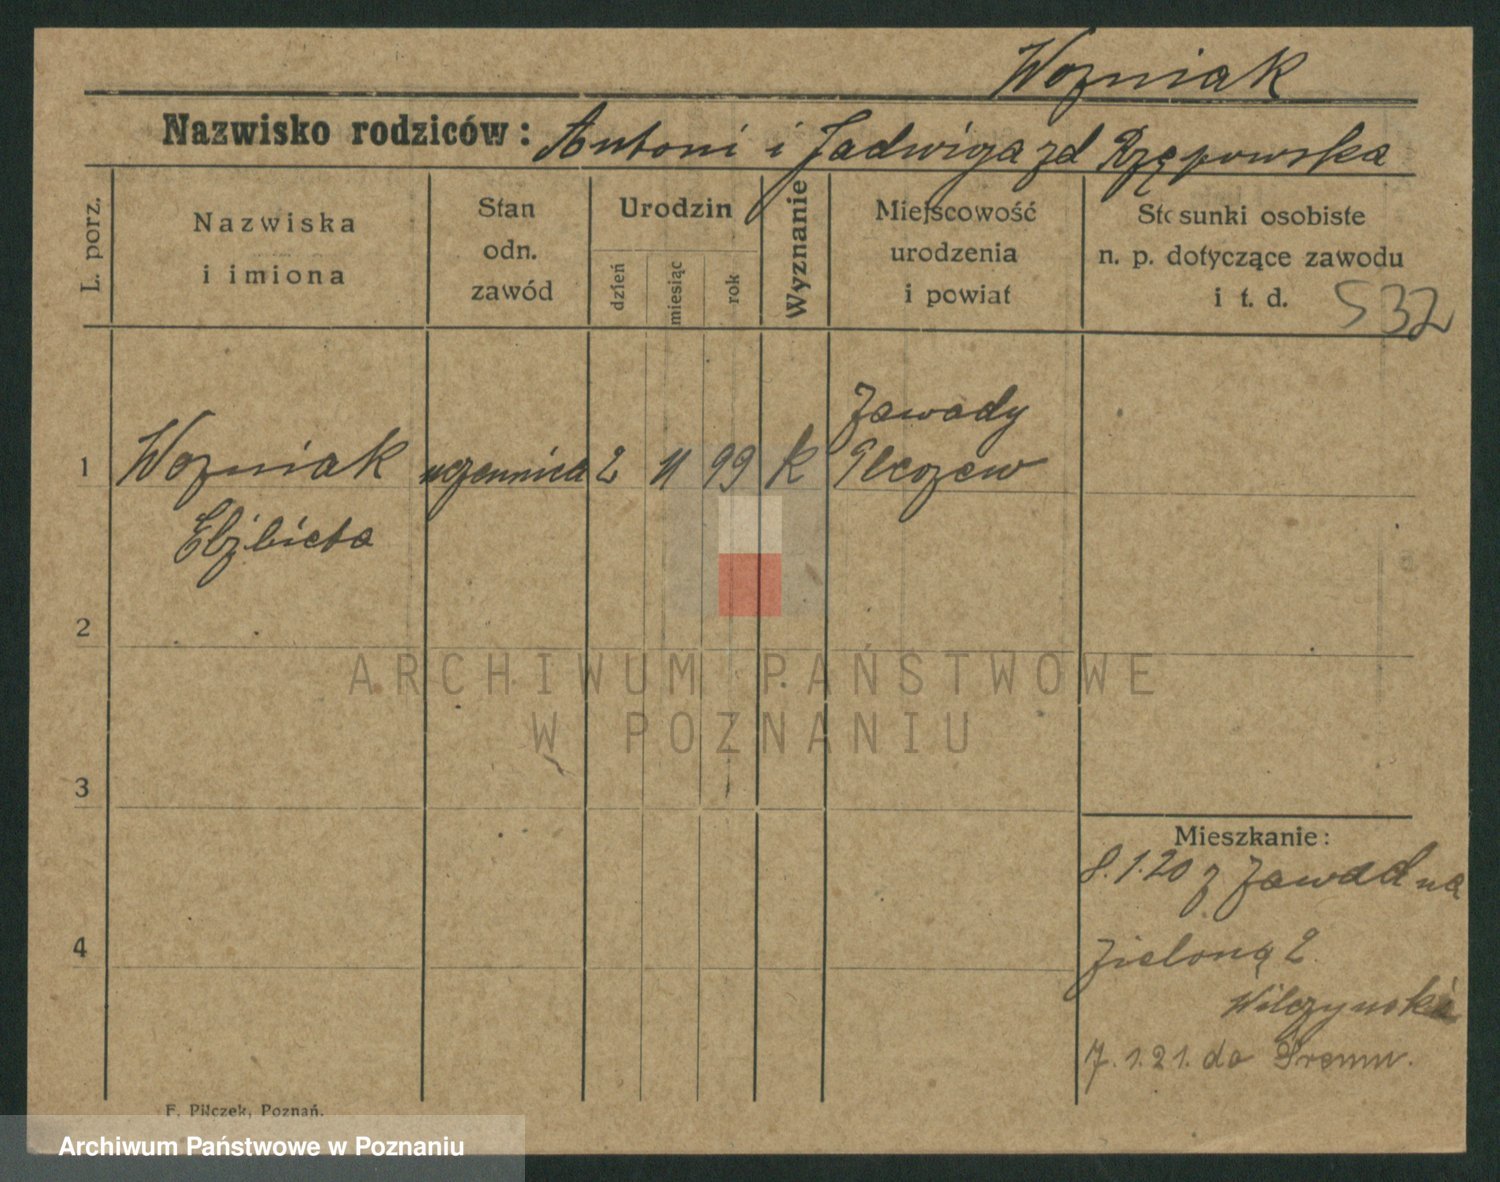 Wozniak
Nazwisko rodziców: Antoni i Jadwiga zd Rzępowska
L. porz.
Nazwiska
i imiona
Stan
odn.
zawód
Urodzin
dzień
miesiąc
rok
Wyznanie
Miejscowość
urodzenia
i powiat
Stosunki osobiste
n. p. dotyczące zawodu
i t. d.
532
1
Wozniak
Elżbieta
uczennica
2
11
99
k
Zawady
Pleszew
2
3
4
Mieszkanie:
8.1.20 z Zawad na
Zieloną 2.
Wilczynski
7.1.21. do Śremu.
F. Pilczek, Poznań.
ARCHIWUM PAŃSTWOWE
W POZNANIU
Archiwum Państwowe w Poznaniu